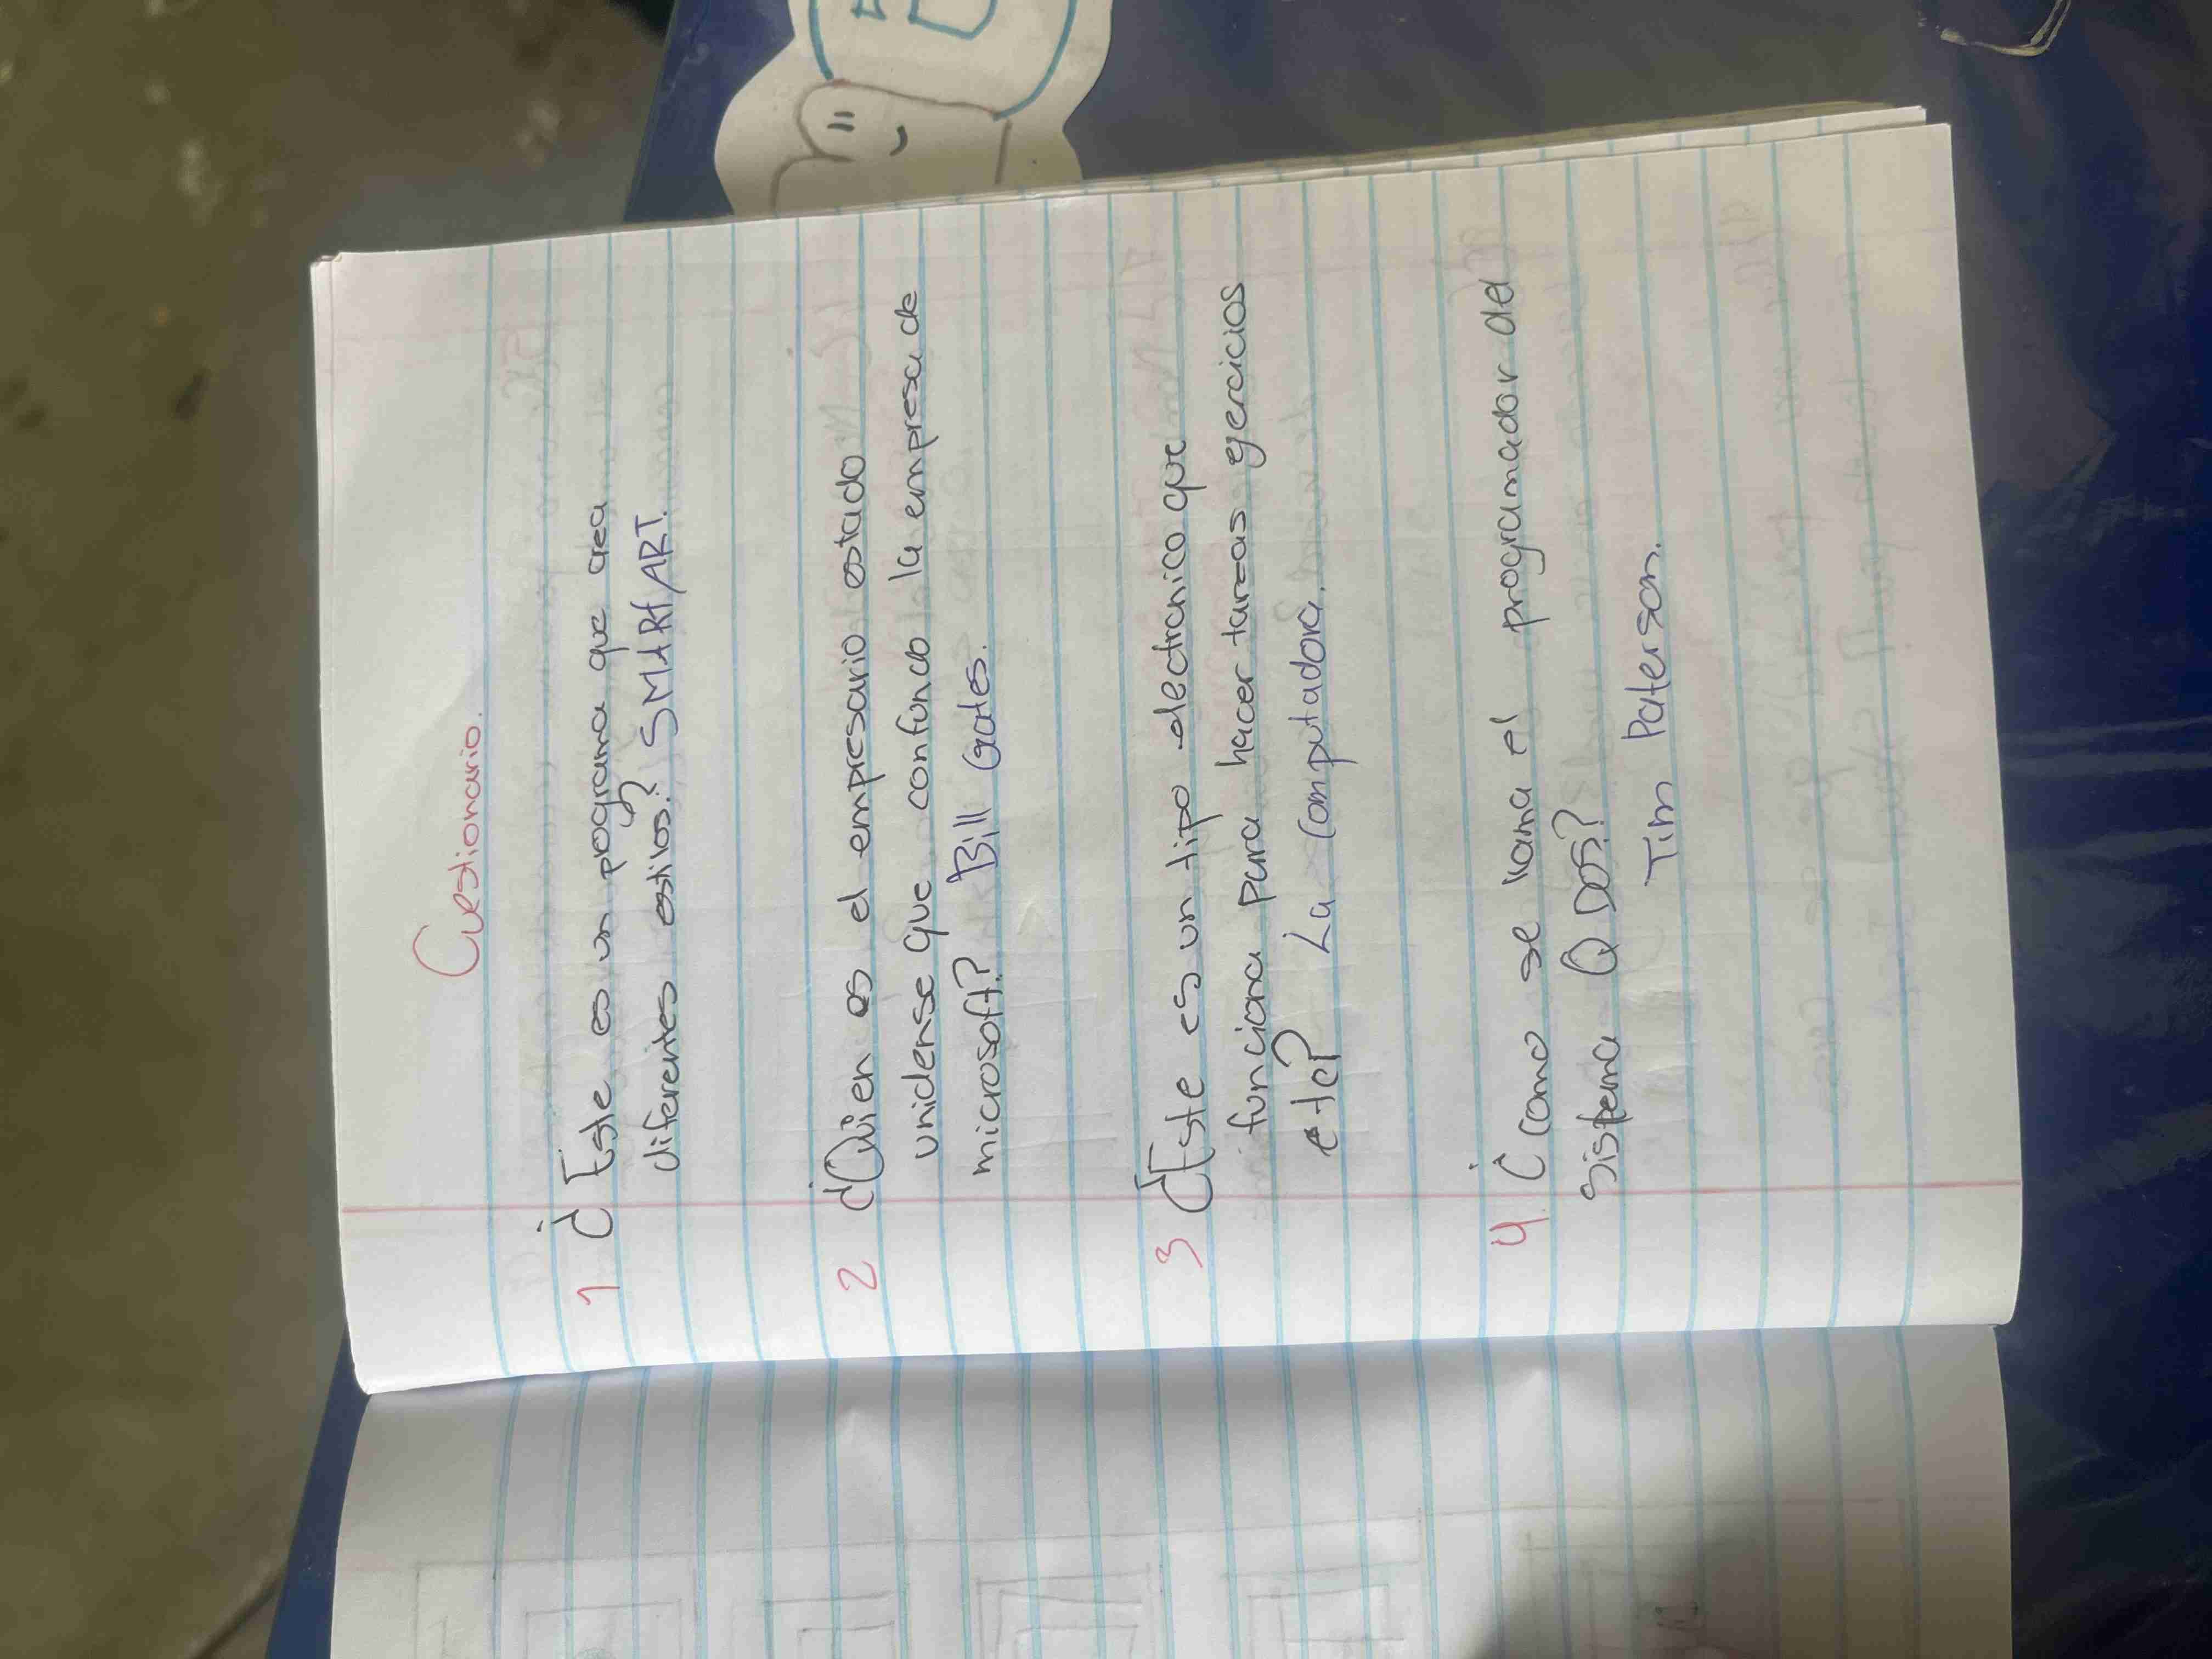 Cuestionario.
1 ¿Este es un programa que crea
diferentes estilos? SMARt/ART.
2 ¿Quien es el empresario estado
unidense que confundo la empresa de
microsoft? Bill Gates.
3 ¿Este es un tipo electronico que
funciona para hacer tareas ejercicios
etc? La computadora.
4 ¿como se llama el programador del
Sistema Q DOS?
Tim Paterson.